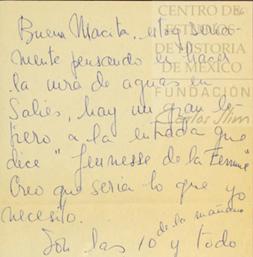 CENTRO DE
ESTUDIOS
DE HISTORIA
DE MEXICO
FUNDACIÓN
Carlos Slim
Buena Macita, estoy seria-
mente pensando en hacer
la cura de aguas en
Salies, hay un gran le-
trero a la entrada que
dice "Jeunesse de la Femme"
Creo que sería lo que yo
necesito.
de la mañana
Son las 10 y todo